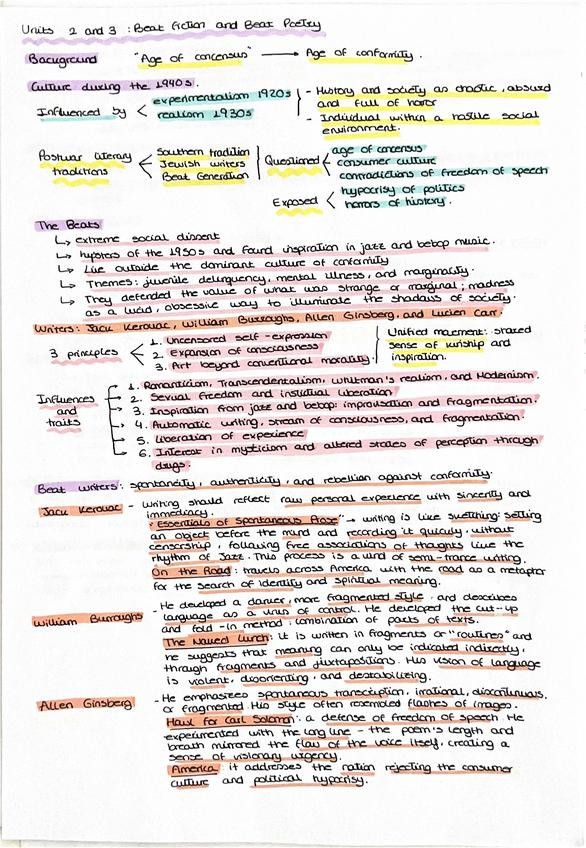 Units 2 and 3: Beat Fiction and Beat Poetry
Background "Age of concensus" → Age of conformity.
Culture during the 1940s.
Influenced by < experimentalism 1920s
realism 1930s
- History and society as chaotic, absurd
and full of horror
- Individual within a hostile social
environment.
Postwar literary
traditions
Southern tradition
Jewish writers
Beat Generation
Questioned
age of concensus
consumer culture
contradictions of freedom of speech
Exposed < hypocrisy of politics
horrors of history.
The Beats
↳ extreme social dissent
↳ hypsters of the 1950s and found inspiration in jazz and bebop music.
↳ Live outside the dominant culture of conformity
↳ Themes: juvenile delinquency, mental illness, and marginality.
↳ They defended the value of what was strange or marginal; madness
as a lucid, obsessive way to illuminate the shadows of society.
Writers: Jack Kerouac, William Burroughs, Allen Ginsberg, and Lucien Carr.
3 principles
1. Uncensored self-expression
2. Expansion of consciousness
3. Art beyond conventional morality
Unified movement: shared
sense of kinship and
inspiration.
Influences
and
traits
1. Romanticism, Transcendentalism, Whitman's realism, and Modernism.
2. Sexual freedom and instictual liberation
3. Inspiration from jazz and bebop: improvisation and fragmentation.
4. Automatic writing, stream of consciousness, and fragmentation.
5. Liberation of experience
6. Interest in mysticism and altered states of perception through
drugs.
Beat writers: spontaneity, authenticity, and rebellion against conformity.
Jack Kerouac - Writing should reflect raw personal experience with sincerity and
immediacy.
"Essentials of Spontaneous Prose" → writing is like sketching: setting
an object before the mind and recording it quickly, without
censorship, following free associations of thoughts like the
rhythm of Jazz. This process is a kind of semi-trance writing.
On the Road: travels across America with the road as a metaphor
for the search of identity and spiritual meaning.
William Burroughs
- He developed a darker, more fragmented style, and describes
language as a virus of control. He developed the cut-up
and fold-in method: combination of parts of texts.
The Naked Lunch: it is written in fragments or "routines" and
he suggests that meaning can only be indicated indirectly,
through fragments and juxtapositions. His vision of language
is violent, disorienting, and destabilizing.
Allen Ginsberg
- He emphasizes spontaneous transcription, irrational, discontinuous,
or fragmented. His style often resembled flashes of images.
Howl for Carl Solomon: a defense of freedom of speech. He
experimented with the long line - the poem's length and
breath mirrored the flow of the voice itself, creating a
sense of visionary urgency.
America: it addresses the nation rejecting the consumer
culture and political hypocrisy.